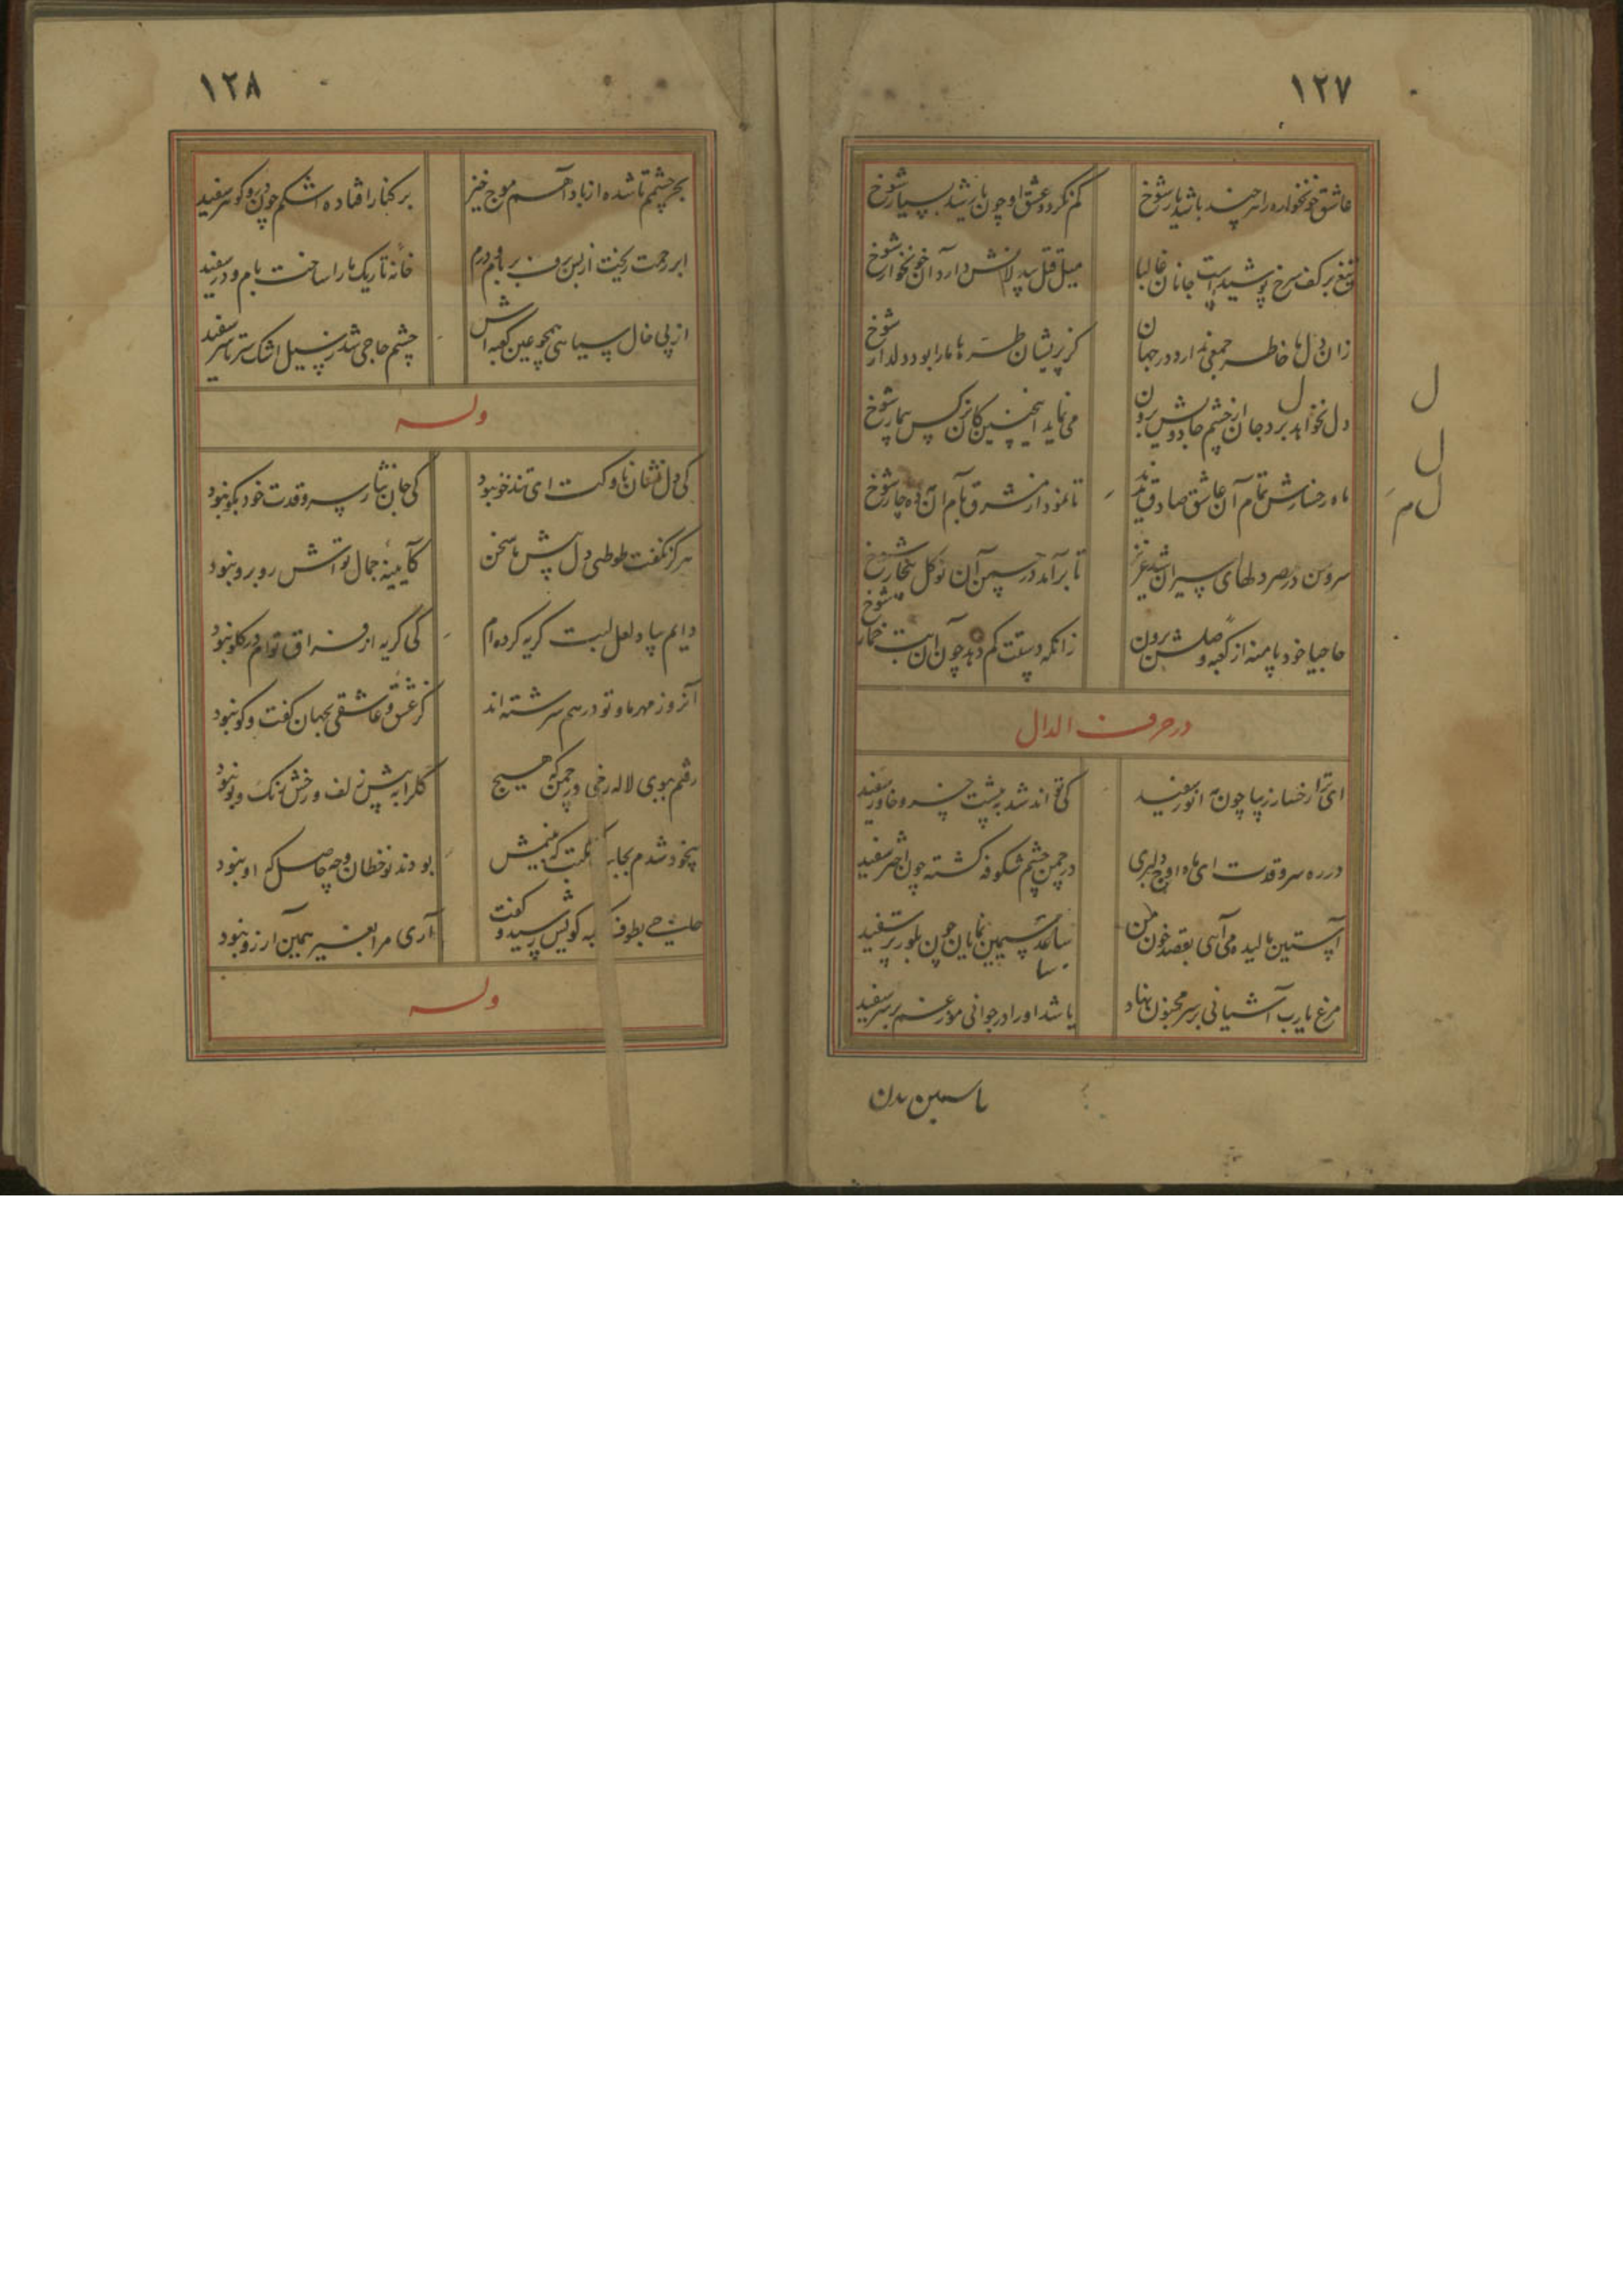 ١٢٧
عاشق خونخواره را هر چند باشد یار شوخ
کم نکردد عشق او چون باشد بسیار شوخ
تیغ بر کف سرخ پوشیدست جانان غالبا
میل قتل بیدلانش دارد آن خونخوار شوخ
زان دل ما خاطر جمعی ندارد در جهان
کز پریشان طره‌ها ما را بود دلدار شوخ
دل نخواهد برد جان از چشم جادویش برون
می نماید اینچنین کان نرکس بیمار شوخ
ماه رخسارش تمام آن عاشق صادق
تا نمود از مشرق بام آن مه ده چار شوخ
سروسن در دلهای پیران شد عزیز
تا برآمد در چمن آن نوکل شوخ
حاجیا خود پا منه از کعبه وصلش برون
زانکه دستت کم دهد چون آن بت خمار شوخ
در حرف الدال
ای ترا رخسار زیبا چون مه انور سفید
کی تواند شد به پیشت خسرو خاور سفید
در ره سرو قدت ای ماه اوج دلبری
در چمن چشم شکوفه کشته چون اختر سفید
آستین مالیده می آیی بقصد خون من
ساعد سیمین نمایان چون بلور تر سفید
مرغ یارب آشیانی بر سر مجنون نهاد
یا شد او را در جوانی مو ز غم بر سر سفید
یاسمین بدن
١٢٨
بحر چشمم تا شده از باد آهم موج خیز
بر کنار افتاده اشکم چون در و کوهر سفید
ابر رحمت ریخت از بس برف بر بام و درم
خانه تاریک ما را ساخت بام و در سفید
از پی خال سیاهی همچو عین کعبه اش
چشم حاجی شد ز سیل اشک سر تا سر سفید
وله
کی دل نشان ناوکت ای تندخو نبود
کی جان نثار سرو قدت خود بکو نبود
هرکز نکفت طوطی دل پیش ما سخن
کآیینه جمال تواش روبرو نبود
دایم بیاد لعل لبت کریه کرده ام
کی کریه از فراق توام در کلو نبود
آنروز مهر ما و تو درهم سرشته اند
کز عشق و عاشقی بجهان کفت و کو نبود
رفتم ببوی لاله رخی در چمن که هیچ
کلرا به پیش زلف و رخش رنک و بو نبود
بیخود شدم بجانب مکتب که بینمش
بودند نوخطان و چه حاصل که او نبود
حاجی بطوف کعبه کویش رسید و کفت
آری مرا بغیر همین آرزو نبود
وله